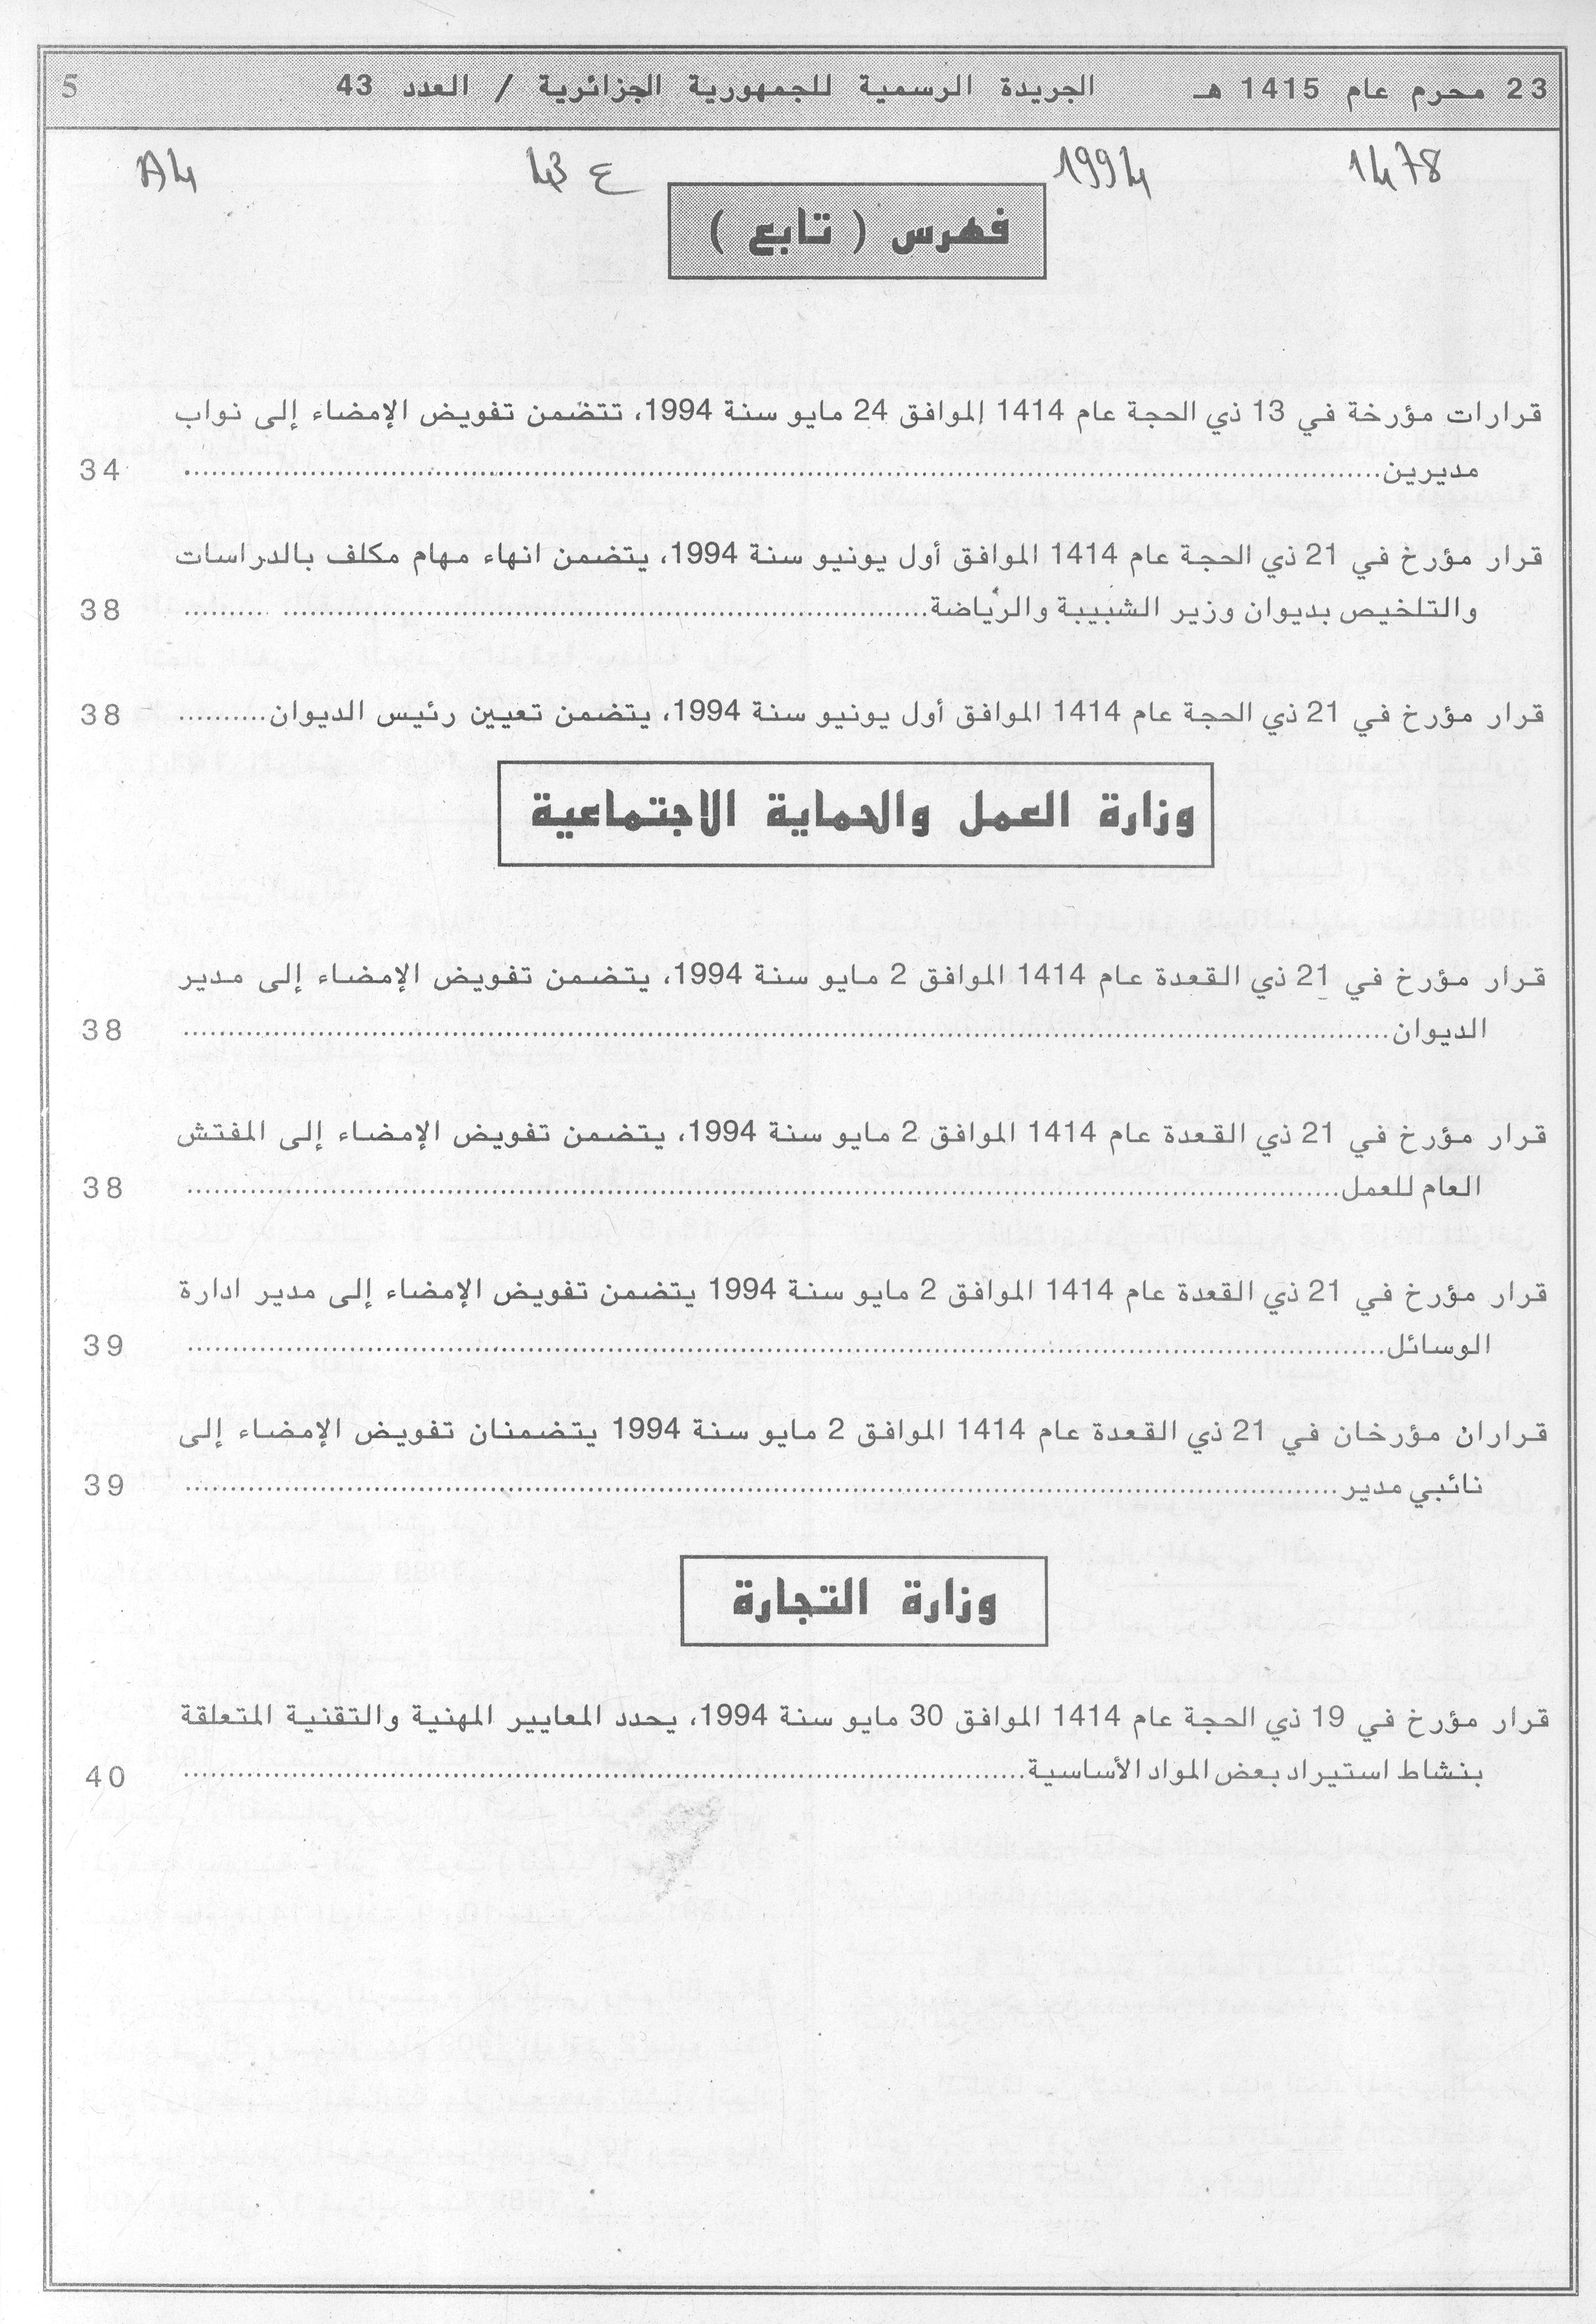 23 محرم عام 1415 هـ الجريدة الرسمية للجمهورية الجزائرية / العدد 43 5
1478 1994 ع 43 A4
فهرس ( تابع )
قرارات مؤرخة في 13 ذي الحجة عام 1414 الموافق 24 مايو سنة 1994، تتضمن تفويض الإمضاء إلى نواب
مديرين.................... 34
قرار مؤرخ في 21 ذي الحجة عام 1414 الموافق أول يونيو سنة 1994، يتضمن انهاء مهام مكلف بالدراسات
والتلخيص بديوان وزير الشبيبة والرياضة.................... 38
قرار مؤرخ في 21 ذي الحجة عام 1414 الموافق أول يونيو سنة 1994، يتضمن تعيين رئيس الديوان.......... 38
وزارة العمل والحماية الاجتماعية
قرار مؤرخ في 21 ذي القعدة عام 1414 الموافق 2 مايو سنة 1994، يتضمن تفويض الإمضاء إلى مدير
الديوان.................... 38
قرار مؤرخ في 21 ذي القعدة عام 1414 الموافق 2 مايو سنة 1994، يتضمن تفويض الإمضاء إلى المفتش
العام للعمل.................... 38
قرار مؤرخ في 21 ذي القعدة عام 1414 الموافق 2 مايو سنة 1994 يتضمن تفويض الإمضاء إلى مدير ادارة
الوسائل.................... 39
قراران مؤرخان في 21 ذي القعدة عام 1414 الموافق 2 مايو سنة 1994 يتضمنان تفويض الإمضاء إلى
نائبي مدير.................... 39
وزارة التجارة
قرار مؤرخ في 19 ذي الحجة عام 1414 الموافق 30 مايو سنة 1994، يحدد المعايير المهنية والتقنية المتعلقة
بنشاط استيراد بعض المواد الأساسية.................... 40